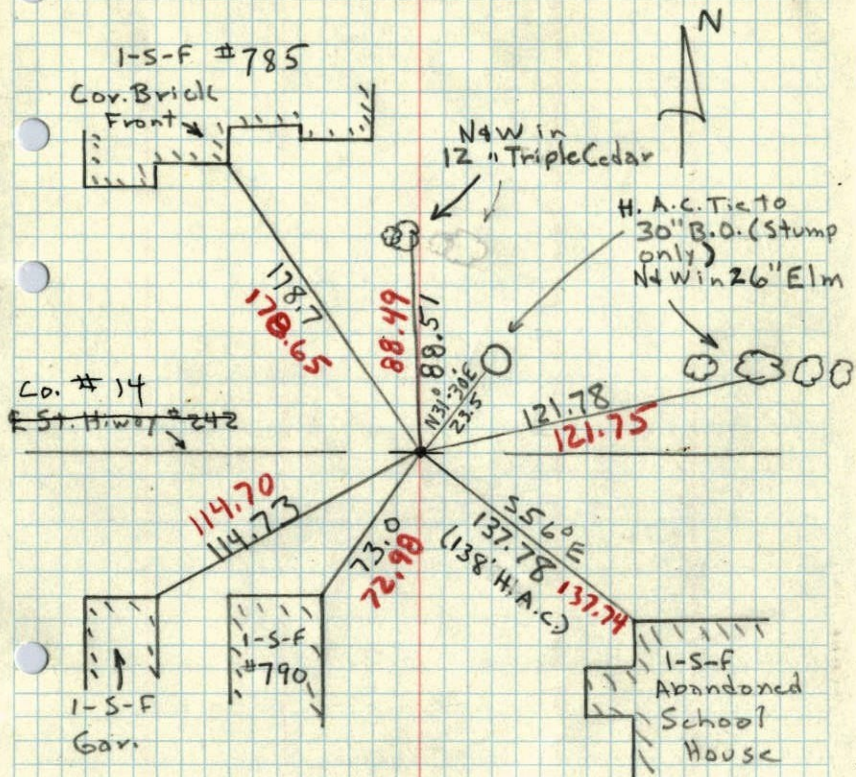 N
1-S-F #785
Cor. Brick
Front
N&W in
12" Triple Cedar
H.A.C. Tie to
30" B.O. (Stump
only)
N&W in 26" Elm
178.7
178.65
88.49
88.51
N31°30'E
23.5
121.78
121.75
Co. #14
St. Hiway #242
114.70
114.73
73.0
72.98
S56°E
137.78
(138' H.A.C.)
137.74
1-S-F
Gar.
1-S-F
#790
1-S-F
Abandoned
School
House